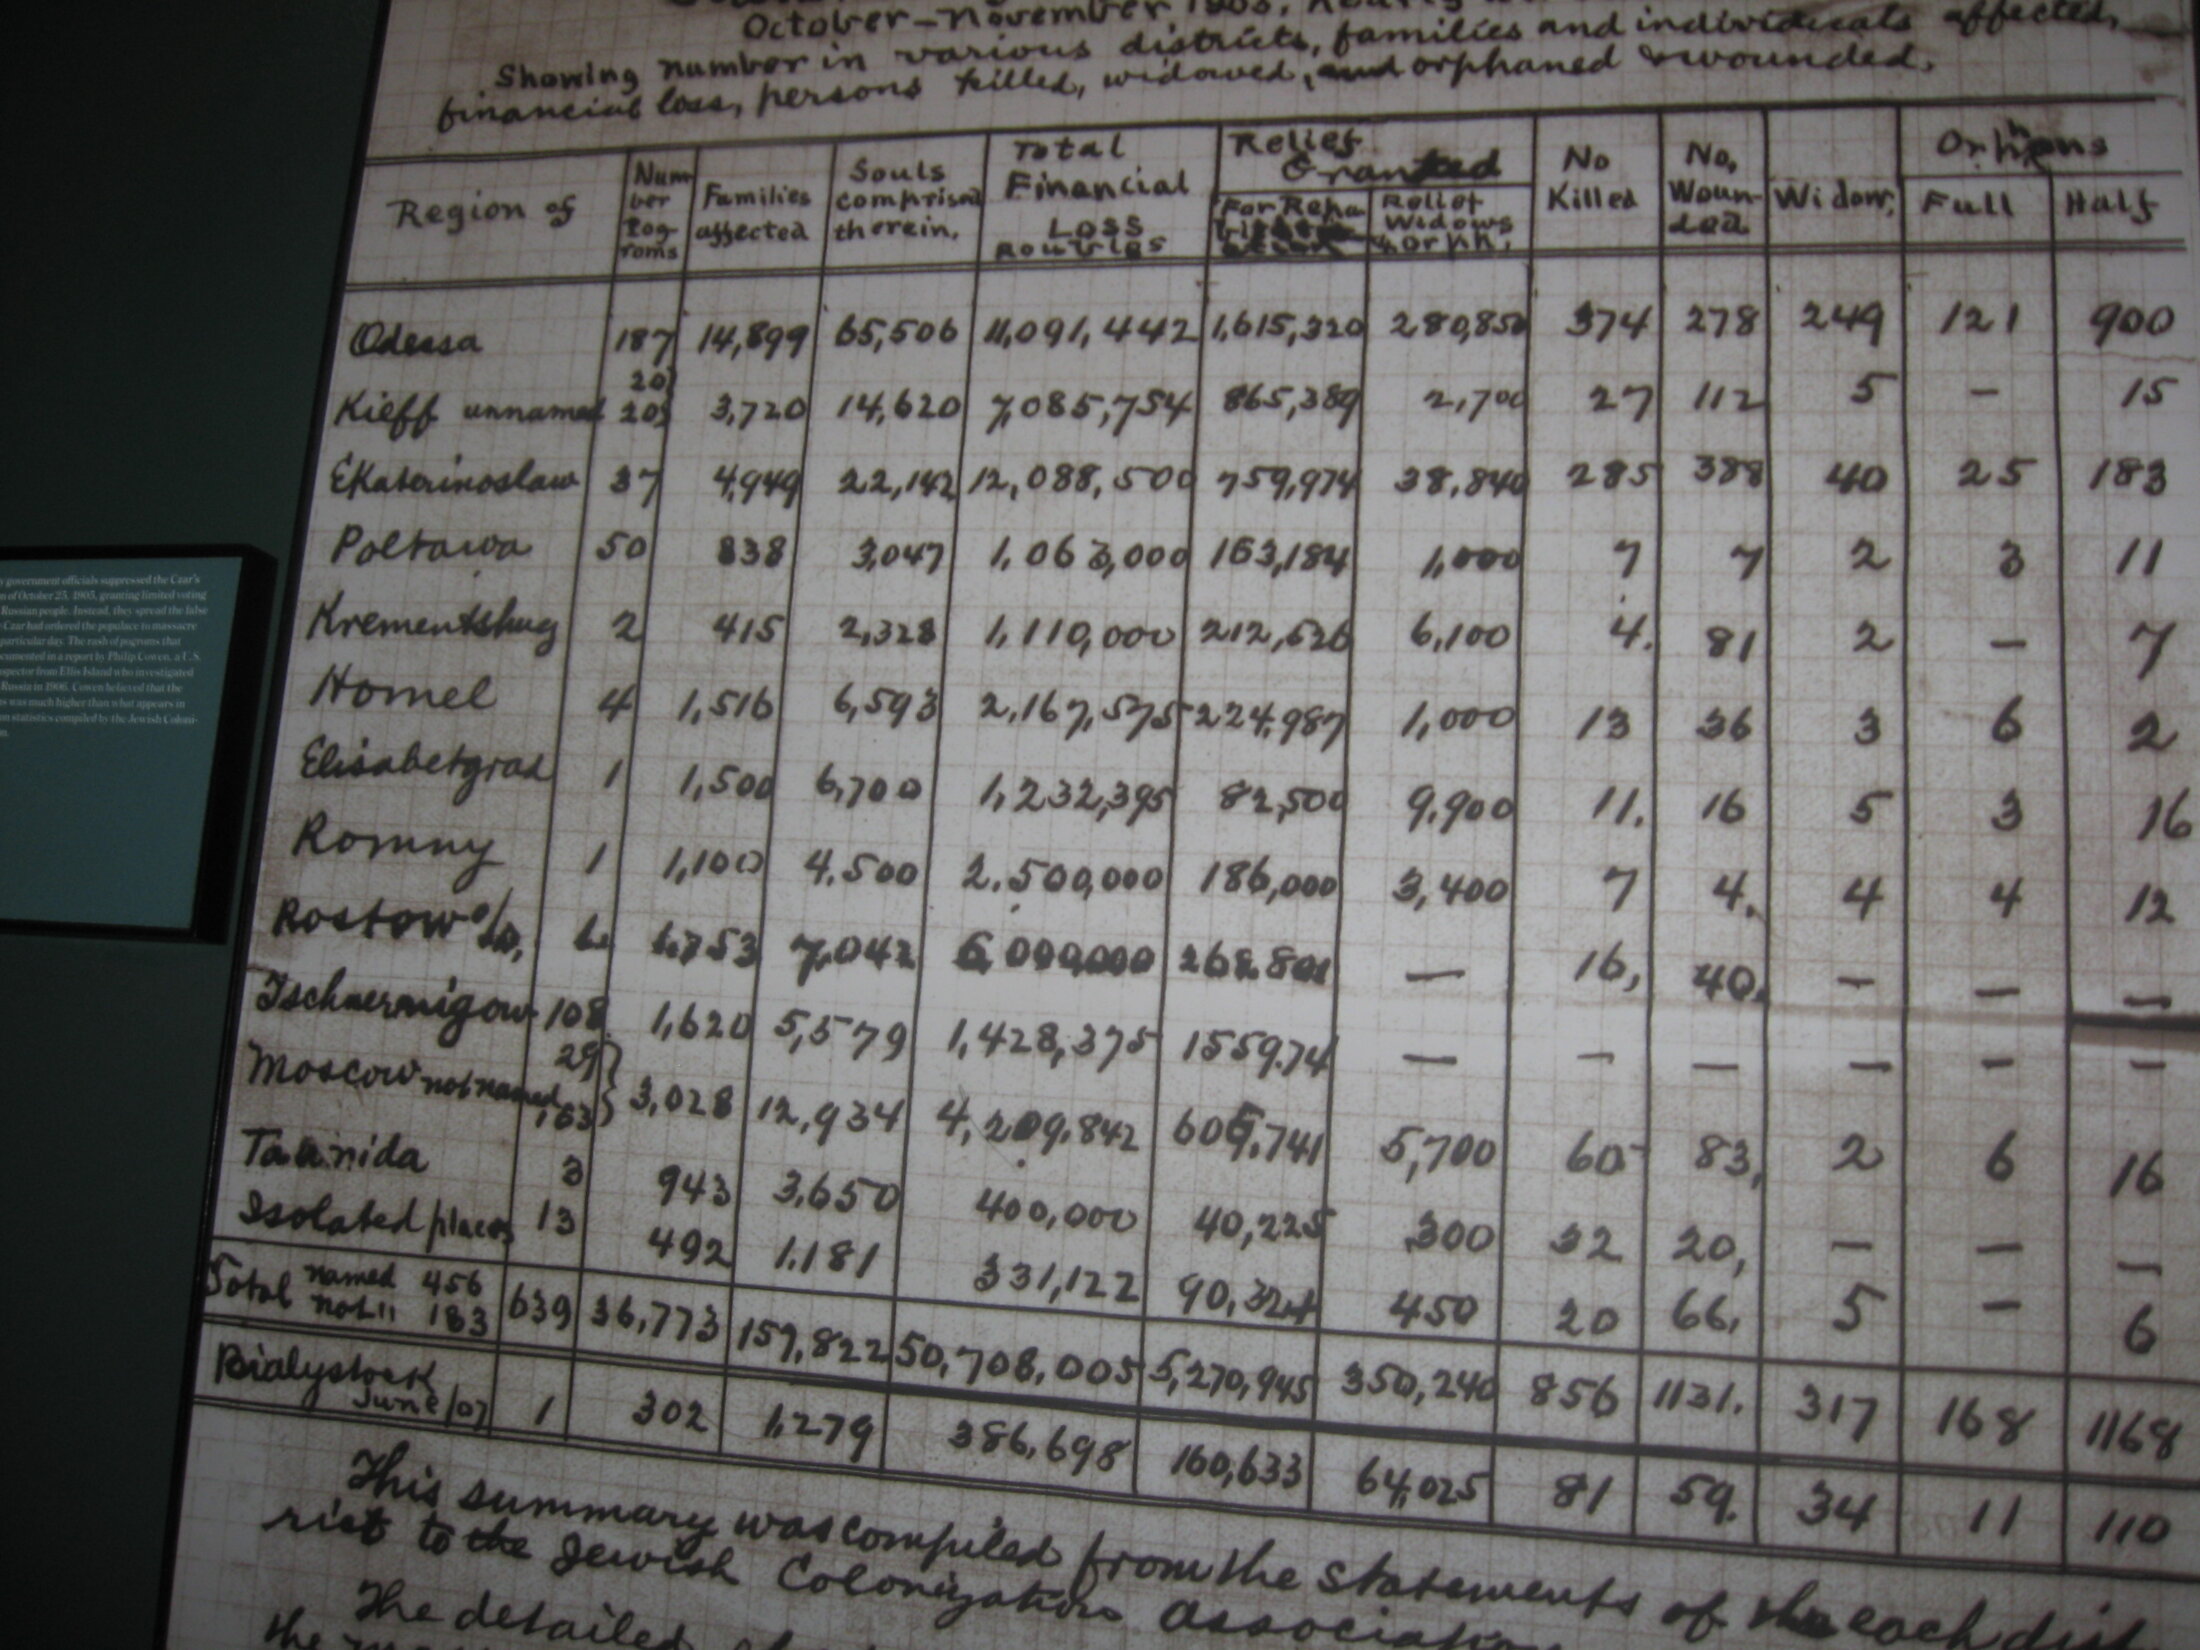 October-November 1905,
Showing number in various districts, families and individuals affected,
financial loss, persons killed, widowed, and orphaned & wounded.
Region of | Num ber Pog- roms | Families affected | Souls comprised therein. | Total Financial Loss Roubles | Relief Granted | No Killed | No, Woun- ded | Widow, | Orphans
For Reha | Relief Widows & orph. | Full | Half
Odessa 187 14,899 65,506 11,091,442 1,615,320 280,850 374 278 249 121 900
20
Kieff unnamed 20 3,720 14,620 7,085,754 865,389 2,700 27 112 5 – 15
Ekaterinoslaw 37 4,949 22,142 12,088,500 759,974 38,840 285 388 40 25 183
Poltawa 50 838 3,047 1,063,000 163,184 1,000 7 7 2 3 11
Krementshug 2 415 2,328 1,110,000 212,626 6,100 4. 81 2 – 7
Homel 4 1,516 6,593 2,167,575 224,987 1,000 13 36 3 6 2
Elisabetgrad 1 1,500 6,700 1,232,395 82,500 9,900 11. 16 5 3 16
Romny 1 1,100 4.500 2.500,000 186,000 3,400 7 4. 4 4 12
Rostow o/D, 1,753 7,042 6,000,000 268.801 — 16, 40. – — —
Tschnernigow 108 1,620 5,579 1,428,375 1559.74 — – — — – –
29
Moscow not named 163 3,028 12,934 4,209,842 5,700 60 83, 2 6 16
Taurida 3 943 3,650 400,000 40,225 300 32 20, — — —
Isolated places 13 492 1.181 331,122 90,324 450 20 66, 5 – 6
Total named 456
not 11 183 639 36,773 159,822 50,708,005 5,270,945 350,240 856 1131. 317 168 1168
Bialystock
June/07 1 302 1,279 386,698 160,633 64,025 81 59. 34 11 110
This summary was compiled from the statements of the each dist
rict to the Jewish Colonization Association
The detailed
the
y government officials suppressed the Czar's
n of October 25, 1905, granting limited voting
Russian people. Instead, they spread the false
Czar had ordered the populace to massacre
particular day. The rash of pogroms that
cumented in a report by Philip Cowen, a U.S.
spector from Ellis Island who investigated
Russia in 1906. Cowen believed that the
s was much higher than what appears in
on statistics compiled by the Jewish Coloni-
n.